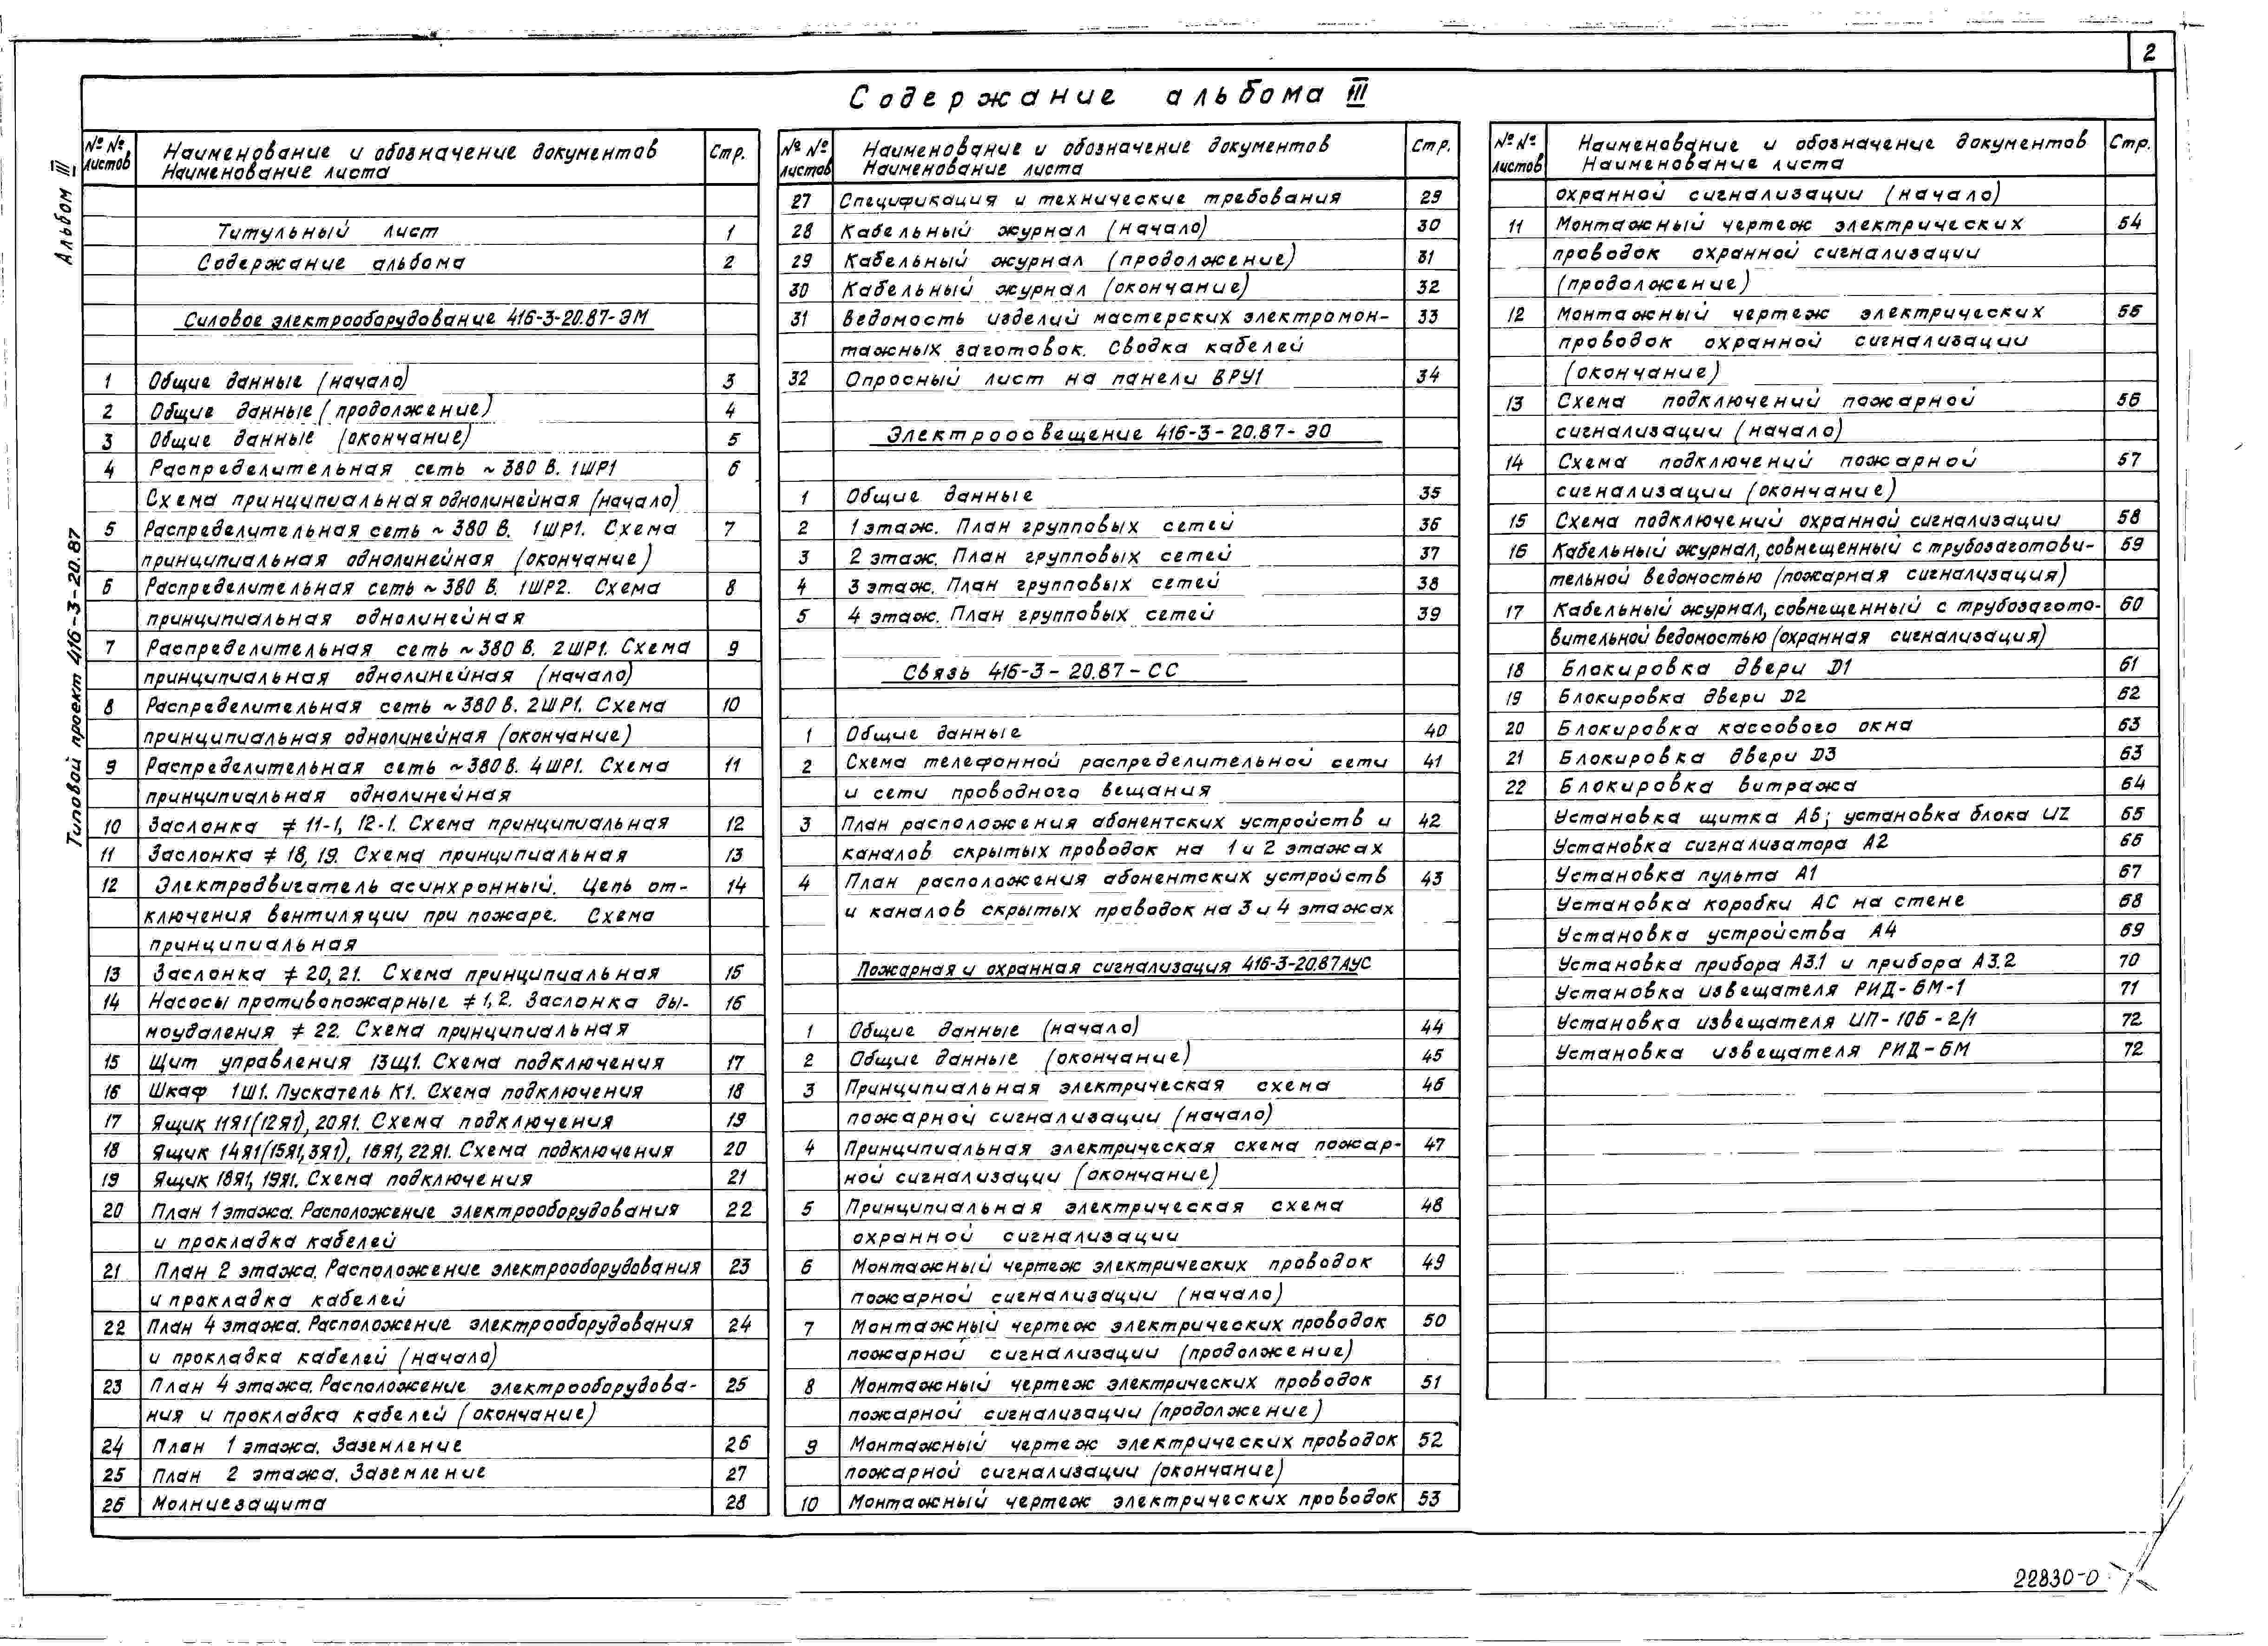 2
Содержание альбома III
Альбом III
Типовой проект 416-3-20.87
№ № листов Наименование и обозначение документов Стр.
Наименование листа
Титульный лист 1
Содержание альбома 2
Силовое электрооборудование 416-3-20.87-ЭМ
1 Общие данные (начало) 3
2 Общие данные (продолжение) 4
3 Общие данные (окончание) 5
4 Распределительная сеть ~ 380 В. 1ШР1 6
Схема принципиальная однолинейная (начало)
5 Распределительная сеть ~ 380 В. 1ШР1. Схема 7
принципиальная однолинейная (окончание)
6 Распределительная сеть ~ 380 В. 1ШР2. Схема 8
принципиальная однолинейная
7 Распределительная сеть ~ 380 В. 2ШР1. Схема 9
принципиальная однолинейная (начало)
8 Распределительная сеть ~ 380 В. 2ШР1. Схема 10
принципиальная однолинейная (окончание)
9 Распределительная сеть ~ 380 В. 4ШР1. Схема 11
принципиальная однолинейная
10 Заслонка ≠ 11-1, 12-1. Схема принципиальная 12
11 Заслонка ≠ 18, 19. Схема принципиальная 13
12 Электродвигатель асинхронный. Цепь от- 14
ключения вентиляции при пожаре. Схема
принципиальная
13 Заслонка ≠ 20, 21. Схема принципиальная 15
14 Насосы противопожарные ≠ 1, 2. Заслонка ды- 16
моудаления ≠ 22. Схема принципиальная
15 Щит управления 13Щ1. Схема подключения 17
16 Шкаф 1Ш1. Пускатель К1. Схема подключения 18
17 Ящик 11Я1(12Я1), 20Я1. Схема подключения 19
18 Ящик 14Я1(15Я1, 3Я1), 16Я1, 22Я1. Схема подключения 20
19 Ящик 18Я1, 19Я1. Схема подключения 21
20 План 1 этажа. Расположение электрооборудования 22
и прокладка кабелей
21 План 2 этажа. Расположение электрооборудования 23
и прокладка кабелей
22 План 4 этажа. Расположение электрооборудования 24
и прокладка кабелей (начало)
23 План 4 этажа. Расположение электрооборудова- 25
ния и прокладка кабелей (окончание)
24 План 1 этажа. Заземление 26
25 План 2 этажа. Заземление 27
26 Молниезащита 28
№ № листов Наименование и обозначение документов Стр.
Наименование листа
27 Спецификация и технические требования 29
28 Кабельный журнал (начало) 30
29 Кабельный журнал (продолжение) 31
30 Кабельный журнал (окончание) 32
31 Ведомость изделий мастерских электромон- 33
тажных заготовок. Сводка кабелей
32 Опросный лист на панели ВРУ1 34
Электроосвещение 416-3-20.87-ЭО
1 Общие данные 35
2 1 этаж. План групповых сетей 36
3 2 этаж. План групповых сетей 37
4 3 этаж. План групповых сетей 38
5 4 этаж. План групповых сетей 39
Связь 416-3-20.87-СС
1 Общие данные 40
2 Схема телефонной распределительной сети 41
и сети проводного вещания
3 План расположения абонентских устройств и 42
каналов скрытых проводок на 1 и 2 этажах
4 План расположения абонентских устройств 43
и каналов скрытых проводок на 3 и 4 этажах
Пожарная и охранная сигнализация 416-3-20.87АУС
1 Общие данные (начало) 44
2 Общие данные (окончание) 45
3 Принципиальная электрическая схема 46
пожарной сигнализации (начало)
4 Принципиальная электрическая схема пожар- 47
ной сигнализации (окончание)
5 Принципиальная электрическая схема 48
охранной сигнализации
6 Монтажный чертеж электрических проводок 49
пожарной сигнализации (начало)
7 Монтажный чертеж электрических проводок 50
пожарной сигнализации (продолжение)
8 Монтажный чертеж электрических проводок 51
пожарной сигнализации (продолжение)
9 Монтажный чертеж электрических проводок 52
пожарной сигнализации (окончание)
10 Монтажный чертеж электрических проводок 53
№ № листов Наименование и обозначение документов Стр.
Наименование листа
охранной сигнализации (начало)
11 Монтажный чертеж электрических 54
проводок охранной сигнализации
(продолжение)
12 Монтажный чертеж электрических 55
проводок охранной сигнализации
(окончание)
13 Схема подключений пожарной 56
сигнализации (начало)
14 Схема подключений пожарной 57
сигнализации (окончание)
15 Схема подключений охранной сигнализации 58
16 Кабельный журнал, совмещенный с трубозаготови- 59
тельной ведомостью (пожарная сигнализация)
17 Кабельный журнал, совмещенный с трубозагото- 60
вительной ведомостью (охранная сигнализация)
18 Блокировка двери D1 61
19 Блокировка двери D2 62
20 Блокировка кассового окна 63
21 Блокировка двери D3 63
22 Блокировка витража 64
Установка щитка А5; установка блока UZ 65
Установка сигнализатора А2 66
Установка пульта А1 67
Установка коробки АС на стене 68
Установка устройства А4 69
Установка прибора А3.1 и прибора А3.2 70
Установка извещателя РИД-6М-1 71
Установка извещателя ИП-105-2/1 72
Установка извещателя РИД-6М 72
22830-0